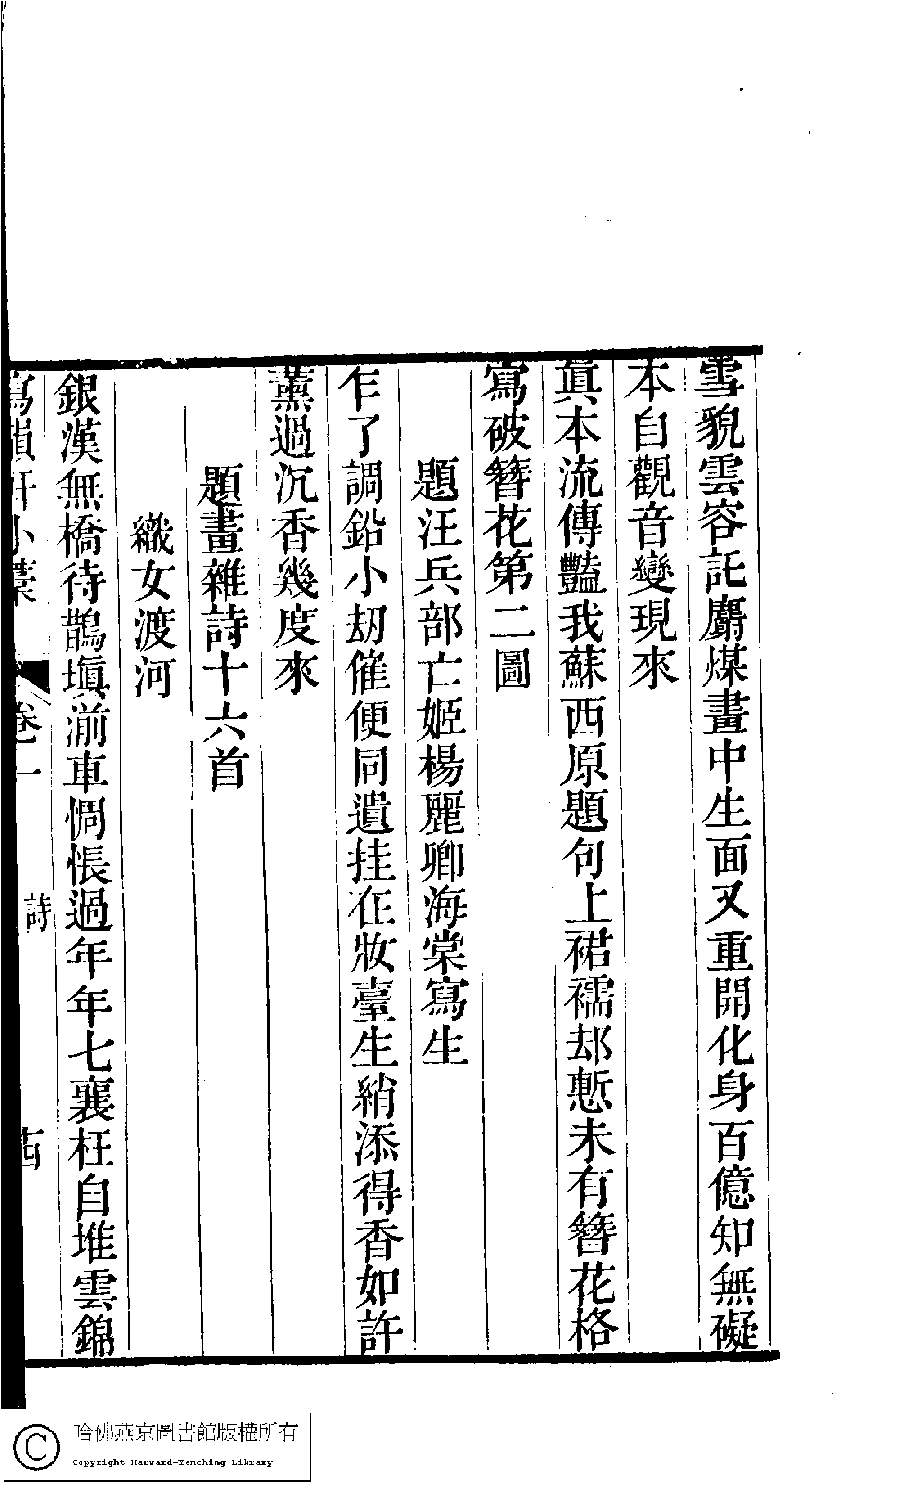 雪貌雲容託麝煤畫中生面又重開化身百億知無礙
本自觀音變現來
眞本流傳豔我蘇西原題句上裙襦却慙未有簪花格
寫破簪花第二圖
題汪兵部亡姬楊麗卿海棠寫生
乍了調鉛小刼催便同遺挂在妝臺生綃添得香如許
薰過沉香幾度來
題畫雜詩十六首
織女渡河
銀漢無橋待鵲塡湔車惆悵過年年七襄枉自堆雲錦
寫韻軒小藁 卷一 詩
哈佛燕京圖書館版權所有
Copyright Harvard-Yenching Library